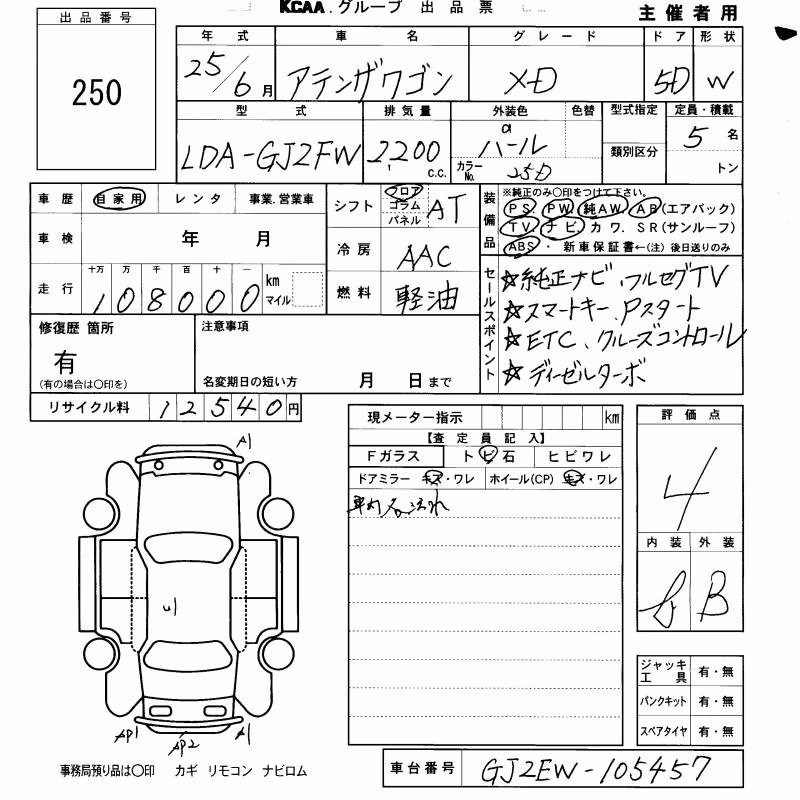 KCAA.グループ 出品票
主催者用
出品番号
250
年式 車名 グレード ドア 形状
25/6月 アテンザワゴン XD 5D W
型式 排気量 外装色 色替 型式指定 定員・積載
LDA-GJ2FW 2200 c.c. パール 類別区分 5名
カラーNo. 25D トン
車歴 自家用 レンタ 事業.営業車
シフト フロア コラム パネル AT
装備品 ※純正のみ○印をつけて下さい。
PS. PW. 純AW. AB(エアバック)
TV. ナビ. カワ. SR(サンルーフ)
ABS. 新車保証書←(注)後日送りのみ
車検 年 月
冷房 AAC
走行 十万 万 千 百 十 一 km マイル
108000
燃料 軽油
セールスポイント
☆純正ナビ、フルセグTV
☆スマートキー、Pスタート
☆ETC、クルーズコントロール
☆ディーゼルターボ
修復歴 箇所
有
(有の場合は○印を)
注意事項
名変期日の短い方 月 日まで
リサイクル料 12540円
現メーター指示 km
【査定員記入】
Fガラス トビ石 ヒビワレ
ドアミラー キズ・ワレ ホイール(CP) キズ・ワレ
車内
評価点
4
内装 外装
B
A1
U
AP1 AP2 A1
ジャッキ工具 有・無
パンクキット 有・無
スペアタイヤ 有・無
事務局預り品は○印 カギ リモコン ナビロム
車台番号 GJ2FW-105457